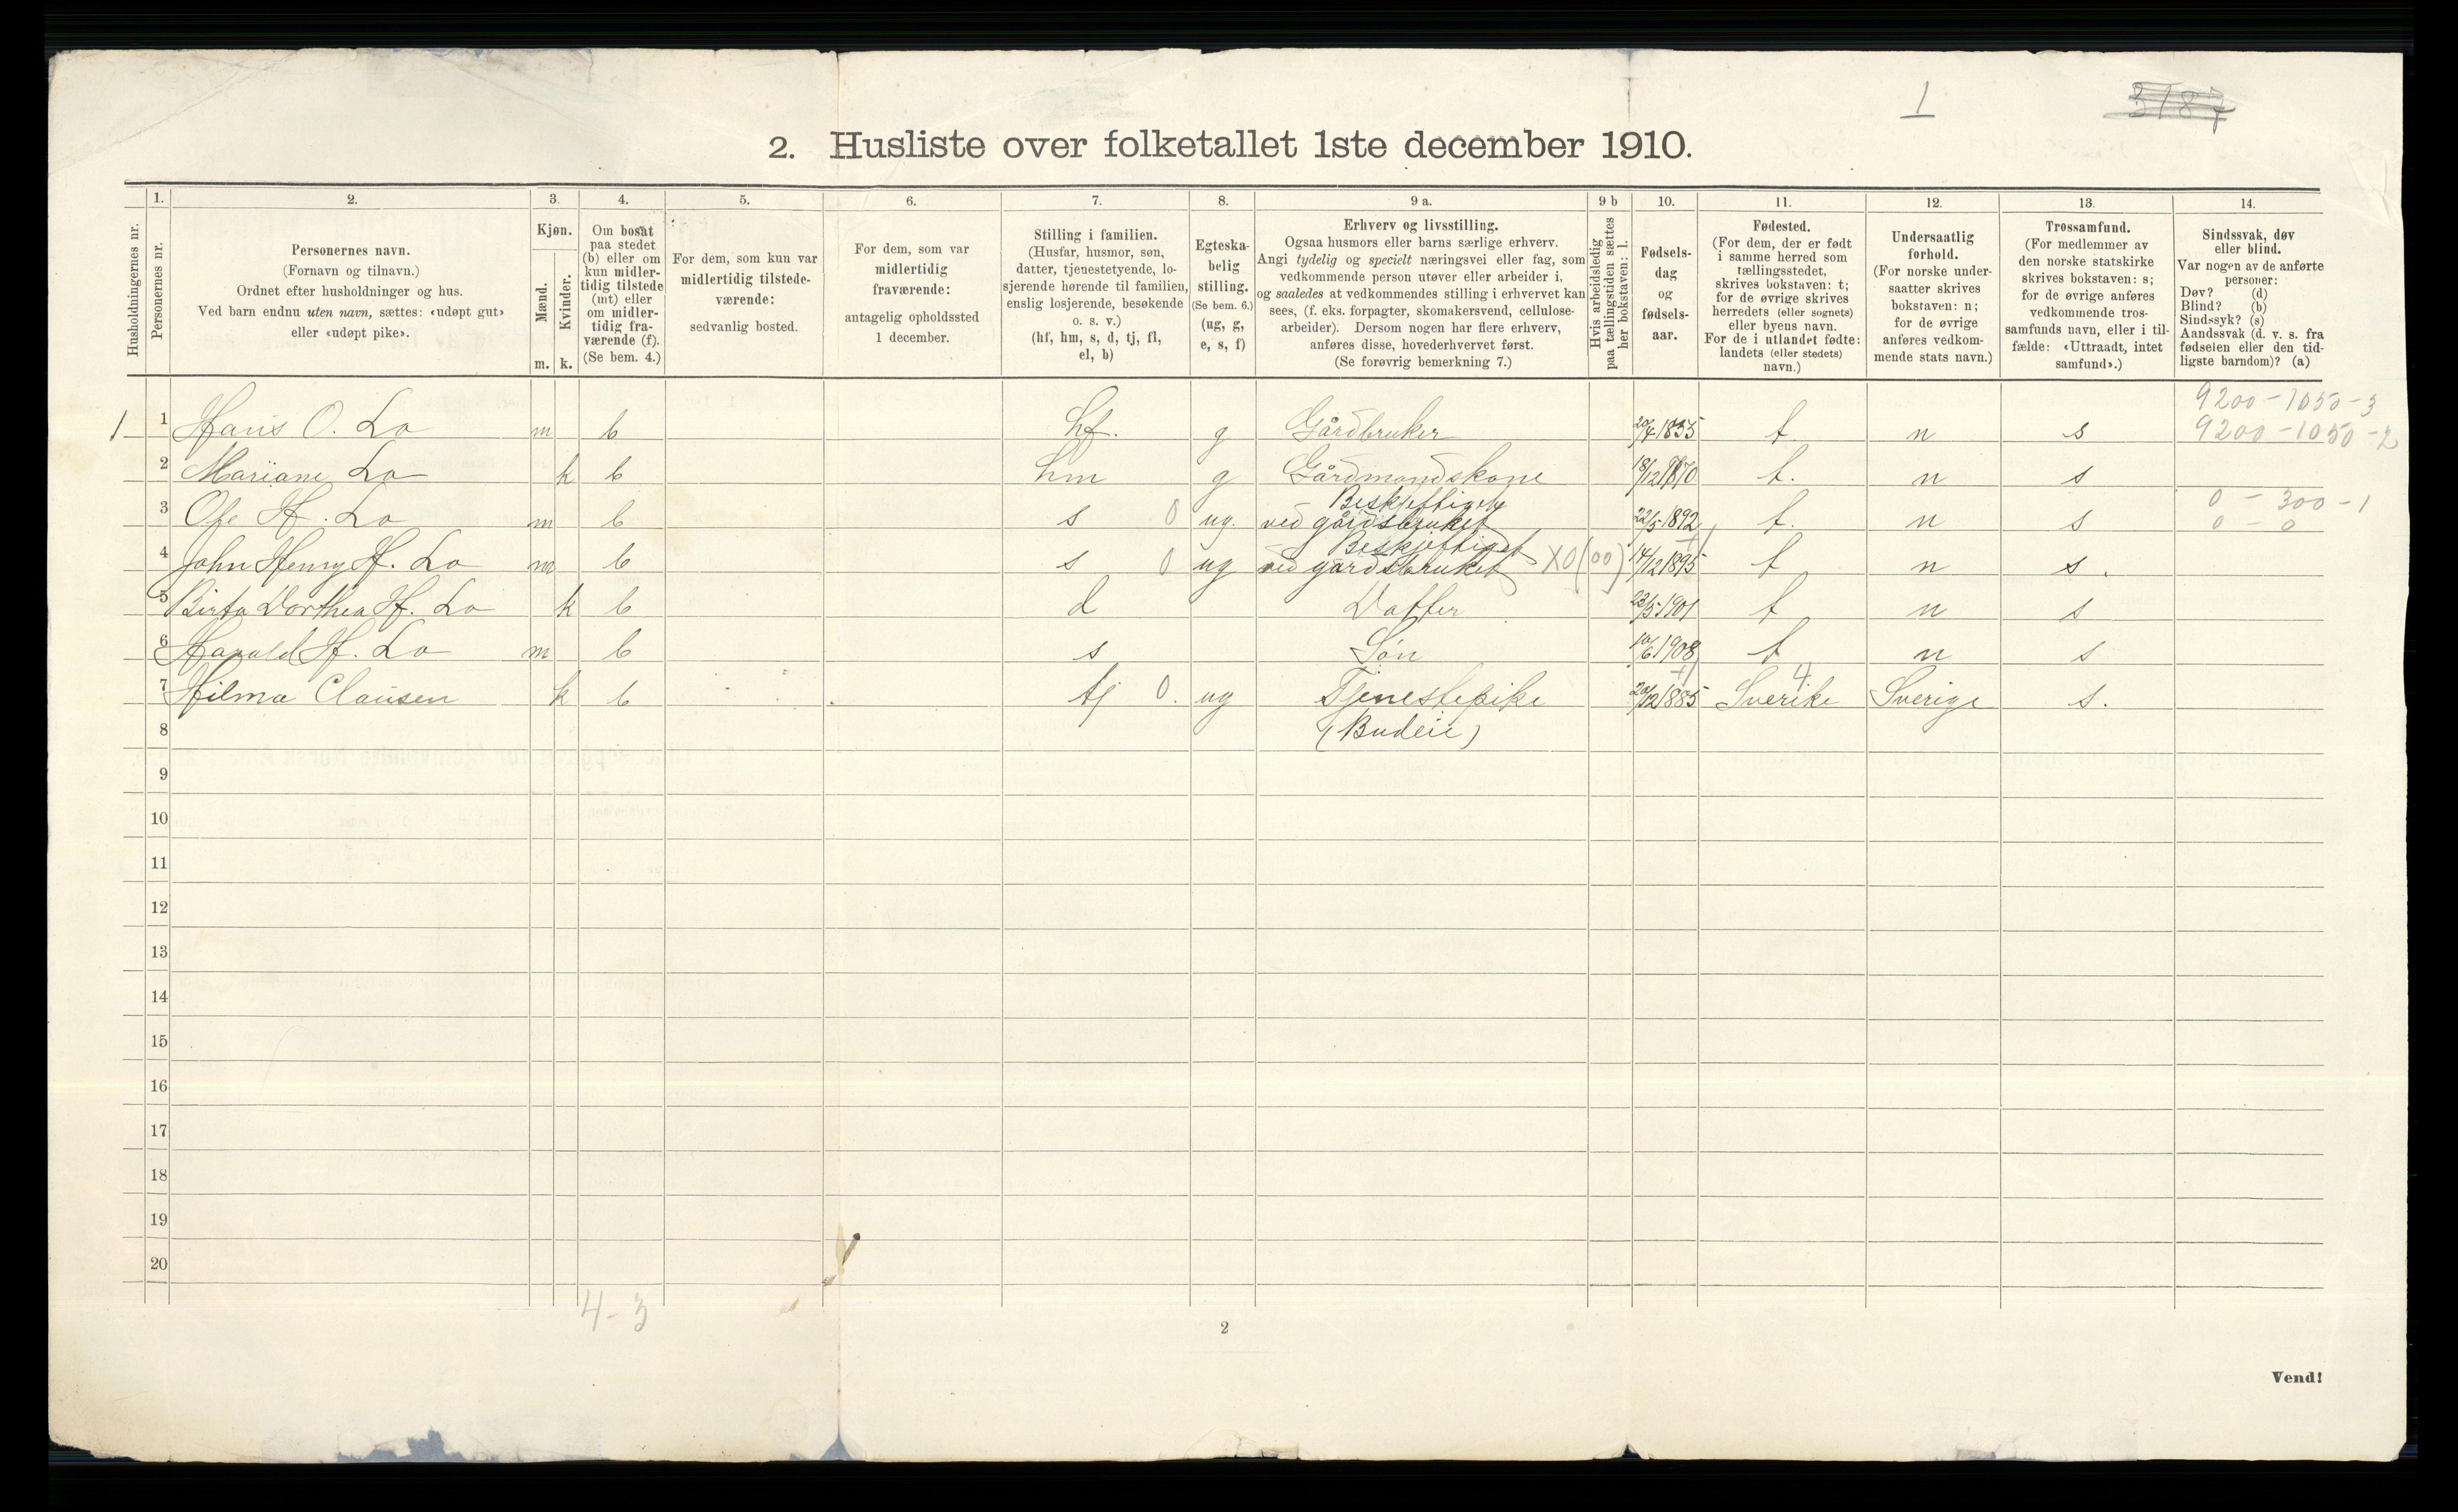 1
3187
2. Husliste over folketallet 1ste december 1910.
Husholdningernes nr.
1.
Personernes nr.
2.
Personernes navn.
(Fornavn og tilnavn.)
Ordnet efter husholdninger og hus.
Ved barn endnu uten navn, sættes: «udøpt gut»
eller «udøpt pike».
3.
Kjøn.
Mænd.
Kvinder.
m. k.
4.
Om bosat
paa stedet
(b) eller om
kun midler-
tidig tilstede
(mt) eller
om midler-
tidig fra-
værende (f).
(Se bem. 4.)
5.
For dem, som kun var
midlertidig tilstede-
værende:
sedvanlig bosted.
6.
For dem, som var
midlertidig
fraværende:
antagelig opholdssted
1 december.
7.
Stilling i familien.
(Husfar, husmor, søn,
datter, tjenestetyende, lo-
sjerende hørende til familien,
enslig losjerende, besøkende
o. s. v.)
(hf, hm, s, d, tj, fl,
el, b)
8.
Egteska-
belig
stilling.
(Se bem. 6.)
(ug, g,
e, s, f)
9 a.
Erhverv og livsstilling.
Ogsaa husmors eller barns særlige erhverv.
Angi tydelig og specielt næringsvei eller fag, som
vedkommende person utøver eller arbeider i,
og saaledes at vedkommendes stilling i erhvervet kan
sees, (f. eks. forpagter, skomakersvend, cellulose-
arbeider). Dersom nogen har flere erhverv,
anføres disse, hovederhvervet først.
(Se forøvrig bemerkning 7.)
9 b
Hvis arbeidsledig
paa tællingstiden sættes
her bokstaven: l.
10.
Fødsels-
dag
og
fødsels-
aar.
11.
Fødested.
(For dem, der er født
i samme herred som
tællingsstedet,
skrives bokstaven: t;
for de øvrige skrives
herredets (eller sognets)
eller byens navn.
For de i utlandet fødte:
landets (eller stedets)
navn.)
12.
Undersaatlig
forhold.
(For norske under-
saatter skrives
bokstaven: n;
for de øvrige
anføres vedkom-
mende stats navn.)
13.
Trossamfund.
(For medlemmer av
den norske statskirke
skrives bokstaven: s;
for de øvrige anføres
vedkommende tros-
samfunds navn, eller i til-
fælde: «Uttraadt, intet
samfund».)
14.
Sindssvak, døv
eller blind.
Var nogen av de anførte
personer:
Døv? (d)
Blind? (b)
Sindssyk? (s)
Aandssvak (d. v. s. fra
fødselen eller den tid-
ligste barndom)? (a)
9200-1050-3
1 1 Hans O. Lo m b hf. g Gårdbruker t. n s 9200-1050-2
2 Mariane Lo k b hm g Gårdmandskone 18/12 1870 t. n s
Beskjeftiget 0 - 300 - 1
3 Ole H. Lo m b s 0 ug. ved gårdsbruket 22/5 1892 t. n s 0 - 0
Beskjeftiget
4 John Henry H. Lo m b s 0 ug ved gårdsbruket X0(00) 14/12 1895 t n s.
5 Birta Dorthea H. Lo k b d Datter 23/5 1901 t n s
6 Harald H. Lo m b s Søn 10/6 1908 t n s
4
7 Hilma Clausen k b tj 0. ug Tjenestepike 20/12 1885 Sverike Sverige s.
8 (Budeie)
9
10
11
12
13
14
15
16
17
18
19
20
4-3
2
Vend!